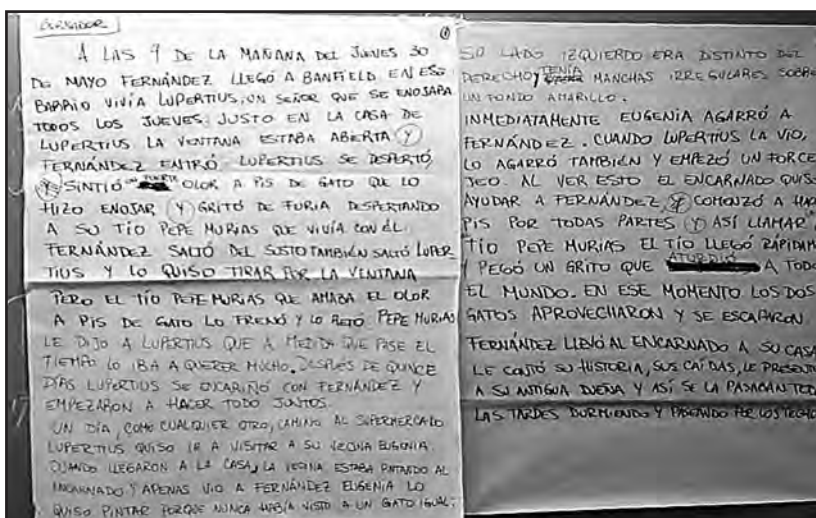 BORRADOR
①
A LAS 9 DE LA MAÑANA DEL JUEVES 30
DE MAYO FERNÁNDEZ LLEGÓ A BANFIELD EN ESE
BARRIO VIVÍA LUPERTIUS, UN SEÑOR QUE SE ENOJABA
TODOS LOS JUEVES. JUSTO EN LA CASA DE
LUPERTIUS LA VENTANA ESTABA ABIERTA Y
FERNÁNDEZ ENTRÓ. LUPERTIUS SE DESPERTÓ,
Y SINTIÓ UN FUERTE OLOR A PIS DE GATO QUE LO
HIZO ENOJAR Y GRITÓ DE FURIA DESPERTANDO
A SU TÍO PEPE MURIAS QUE VIVÍA CON ÉL.
FERNÁNDEZ SALTÓ DEL SUSTO TAMBIÉN SALTÓ LUPER
TIUS Y LO QUISO TIRAR POR LA VENTANA
PERO EL TÍO PEPE MURIAS QUE AMABA EL OLOR
A PIS DE GATO LO FRENÓ Y LO RETÓ. PEPE MURIAS
LE DIJO A LUPERTIUS QUE A MEDIDA QUE PASE EL
TIEMPO LO IBA A QUERER MUCHO. DESPUÉS DE QUINCE
DÍAS LUPERTIUS SE ENCARIÑÓ CON FERNÁNDEZ Y
EMPEZARON A HACER TODO JUNTOS.
UN DÍA, COMO CUALQUIER OTRO, CAMINO AL SUPERMERCADO
LUPERTIUS QUISO IR A VISITAR A SU VECINA EUGENIA.
CUANDO LLEGARON A LA CASA, LA VECINA ESTABA PINTANDO AL
ENCARNADO Y APENAS VIO A FERNÁNDEZ EUGENIA LO
QUISO PINTAR PORQUE NUNCA HABÍA VISTO A UN GATO IGUAL:
SU LADO IZQUIERDO ERA DISTINTO DEL
DERECHO, TENÍA MANCHAS IRREGULARES SOBRE
UN FONDO AMARILLO.
INMEDIATAMENTE EUGENIA AGARRÓ A
FERNÁNDEZ. CUANDO LUPERTIUS LA VIO,
LO AGARRÓ TAMBIÉN Y EMPEZÓ UN FORCE
JEO. AL VER ESTO EL ENCARNADO QUISO
AYUDAR A FERNÁNDEZ Y COMENZÓ A HAC
PIS POR TODAS PARTES Y ASÍ LLAMAR A
TÍO PEPE MURIAS EL TÍO LLEGÓ RÁPIDAM
Y PEGÓ UN GRITO QUE ATURDIÓ A TODO
EL MUNDO. EN ESE MOMENTO LOS DOS
GATOS APROVECHARON Y SE ESCAPARON.
FERNÁNDEZ LLEVÓ AL ENCARNADO A SU CASA
LE CONTÓ SU HISTORIA, SUS CAÍDAS, LE PRESENT
A SU ANTIGUA DUEÑA Y ASÍ SE LA PASABAN TOD
LAS TARDES DURMIENDO Y PASEANDO POR LOS TECHO